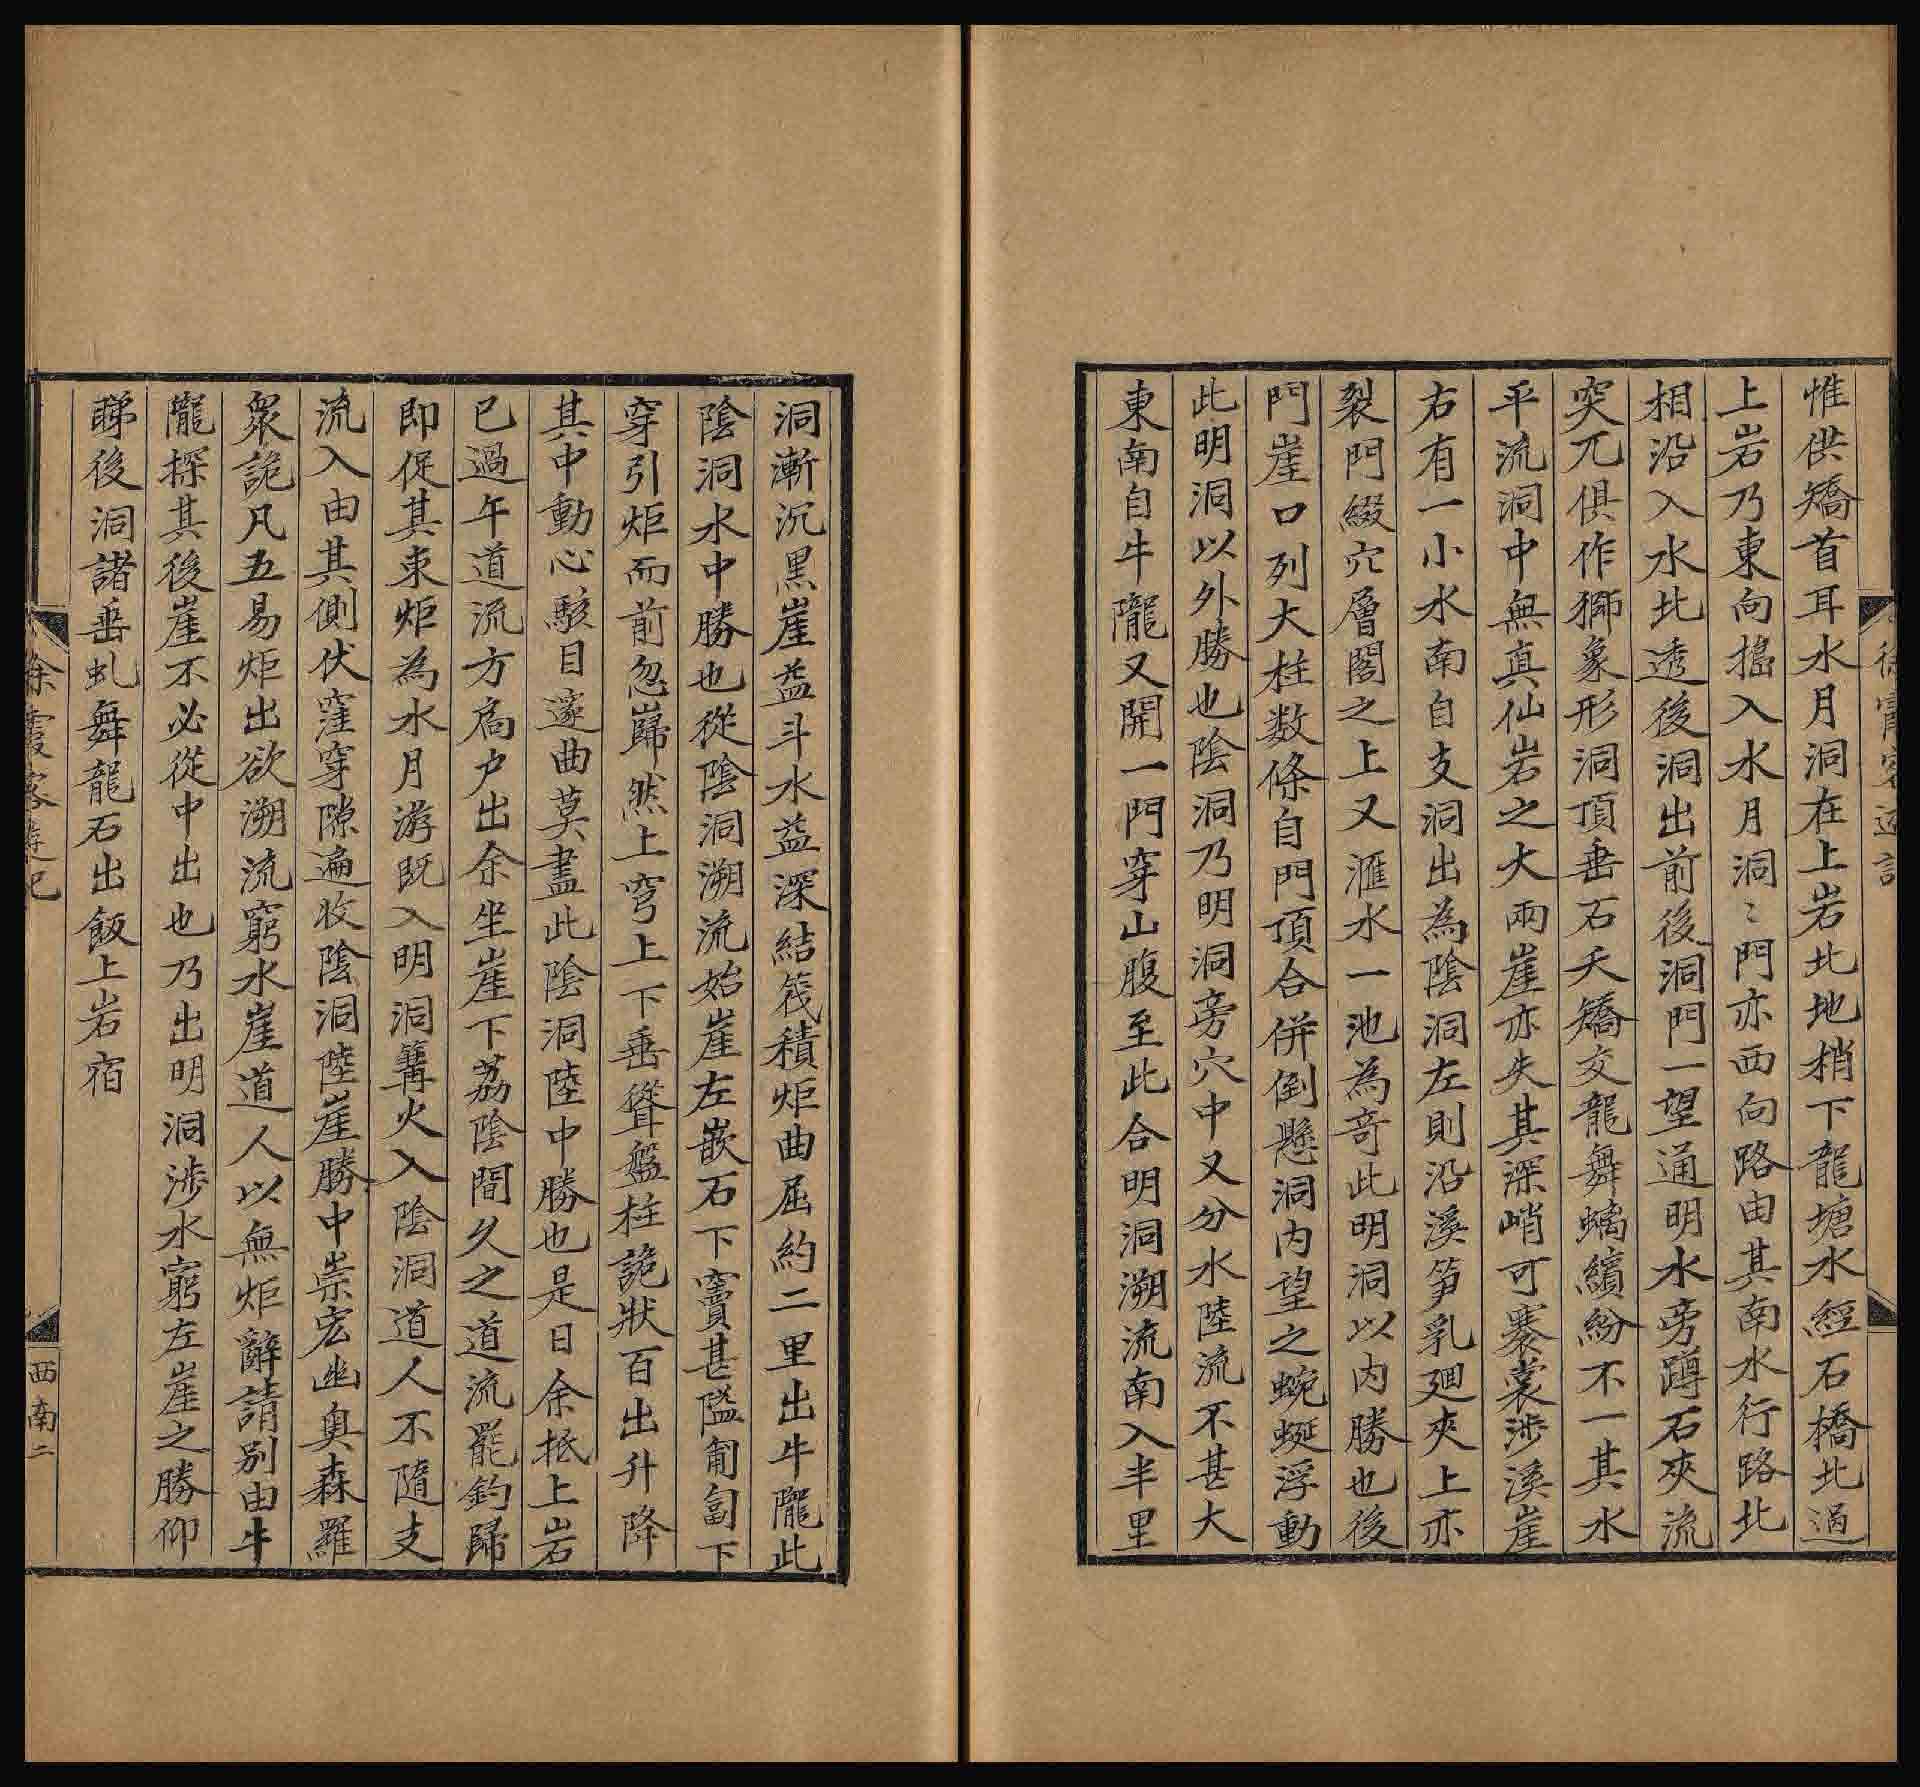 惟供矯首耳水月洞在上岩北地梢下龍塘水經石橋北過
上岩乃東向搗入水月洞〻門亦西向路由其南水行路北
相沿入水北透後洞出前後洞門一望通明水旁蹲石夾流
突兀俱作獅象形洞頂垂石夭矯交龍舞螭繽紛不一其水
平流洞中無真仙岩之大兩崖亦失其深峭可褰裳涉溪崖
右有一小水南自支洞出為陰洞左則沿溪笋乳廻夾上亦
裂門綴穴層閣之上又滙水一池為奇此明洞以内勝也後
門崖口列大柱数條自門頂合併倒懸洞内望之蜿蜒浮動
此明洞以外勝也陰洞乃明洞旁穴中又分水陸流不甚大
東南自牛隴又開一門穿山腹至此合明洞溯流南入半里
洞漸沉黒崖益斗水益深結筏積炬曲屈約二里出牛隴此
陰洞水中勝也從陰洞溯流始崖左嵌石下竇甚隘匍匐下
穿引炬而前忽巋然上穹上下垂聳盤柱詭狀百出升降
其中動心駭目邃曲莫盡此陰洞陸中勝也是日余抵上岩
已過午道流方扃户出余坐崖下荔陰間久之道流罷釣歸
即促其束炬為水月游既入明洞篝火入陰洞道人不隨支
流入由其側伏窪穿隙遍收陰洞陸崖勝中崇宏幽奥森羅
衆詭凡五易炬出欲溯流窮水崖道人以無炬辭請别由牛
隴探其後崖不必從中出也乃出明洞渉水窮左崖之勝仰
睇後洞諸垂虬舞龍石出飯上岩宿
徐霞客遊記
西南二